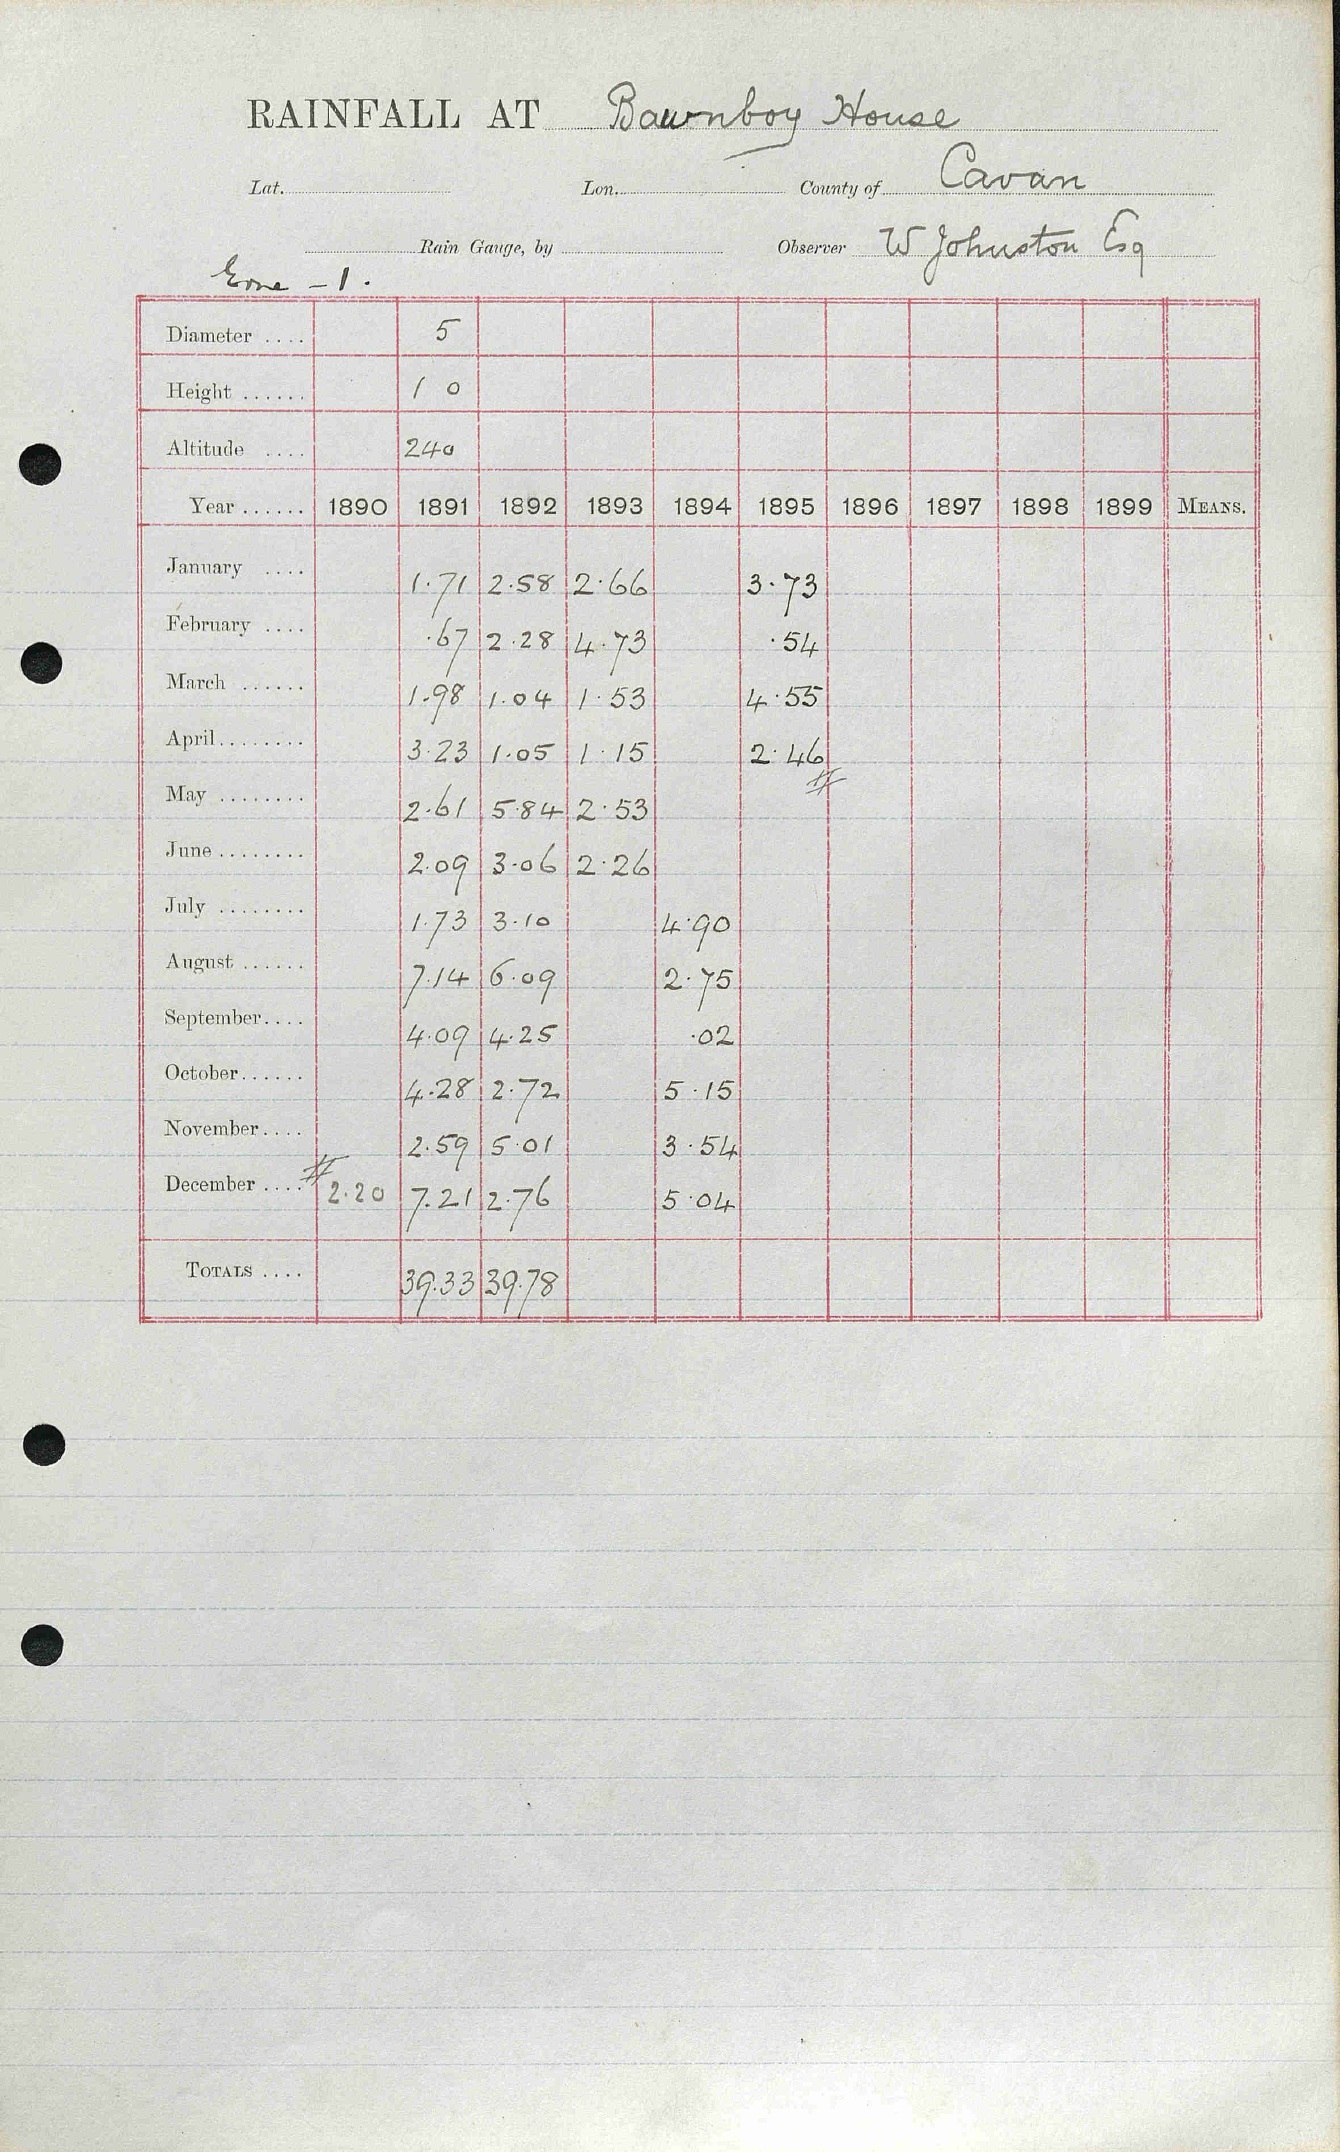 RAINFALL AT Bawnboy House
Lat. Lon. County of Cavan
Rain Gauge, by Observer W Johnston Esq
Erne - 1.
Diameter .... 5
Height ...... 1 0
Altitude .... 240
Year ...... 1890 1891 1892 1893 1894 1895 1896 1897 1898 1899 MEANS.
January .... 1.71 2.58 2.66 3.73
February .... .67 2.28 4.73 .54
March ...... 1.98 1.04 1.53 4.55
April........ 3.23 1.05 1.15 2.46 #
May ........ 2.61 5.84 2.53
June ........ 2.09 3.06 2.26
July ........ 1.73 3.10 4.90
August ...... 7.14 6.09 2.75
September.... 4.09 4.25 .02
October...... 4.28 2.72 5.15
November.... 2.59 5.01 3.54
December .... # 2.20 7.21 2.76 5.04
TOTALS .... 39.33 39.78